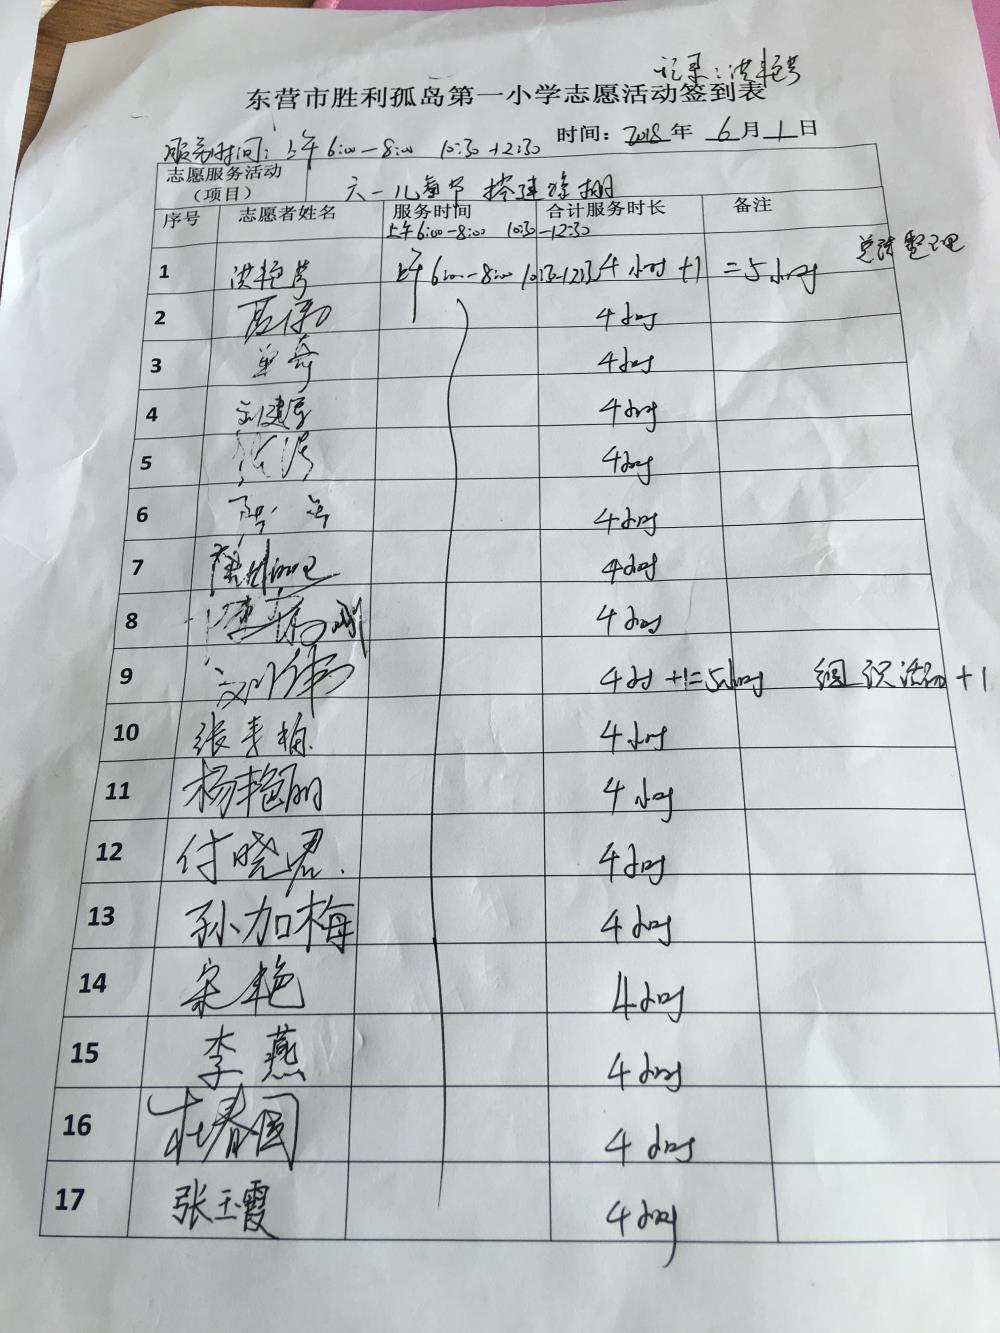 记录：洪艳芳
东营市胜利孤岛第一小学志愿活动签到表
时间：2018年 6月1日
服务时间：上午6:00—8:00 10:30—12:30
志愿服务活动（项目） 六一儿童节 搭建凉棚
序号 志愿者姓名 服务时间 合计服务时长 备注
上午6:00—8:00 10:30—12:30
总结整理
1 洪艳芳 上午6:00—8:00 10:30—12:30 4小时+1 =5小时
2 4小时
3 单奇 4小时
4 刘建军 4小时
5 4小时
6 4小时
7 4小时
8 4小时
9 刘伟 4时+1=5小时 组织活动+1
10 张青梅 4小时
11 杨艳丽 4小时
12 付晓君 4小时
13 孙加梅 4小时
14 宋艳 4小时
15 李燕 4小时
16 杜春国 4小时
17 张玉霞 4小时